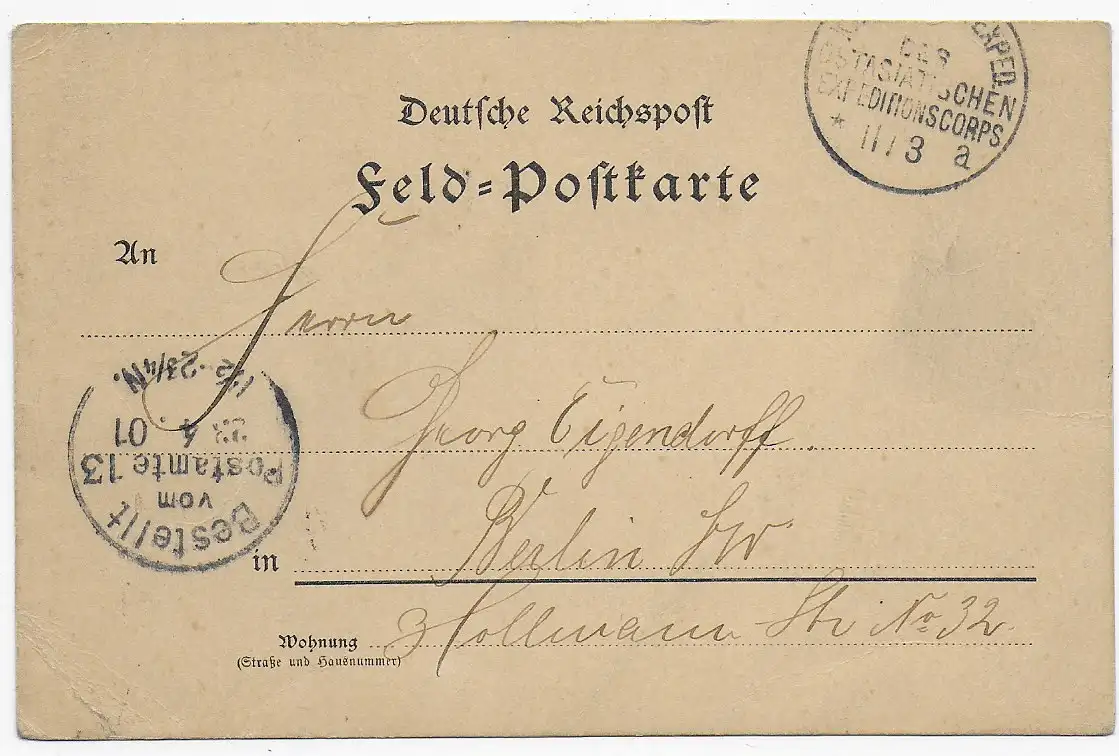 EXPED.
DES
OSTASIATISCHEN
EXPEDITIONSCORPS
* 11/3 a
Deutsche Reichspost
Feld-Postkarte
An
Herrn
Georg Eigendorff.
in Berlin SW
Wohnung Hollmann Str No 32.
(Straße und Hausnummer)
Bestellt
vom
Postamte 13
23 4 01
N.